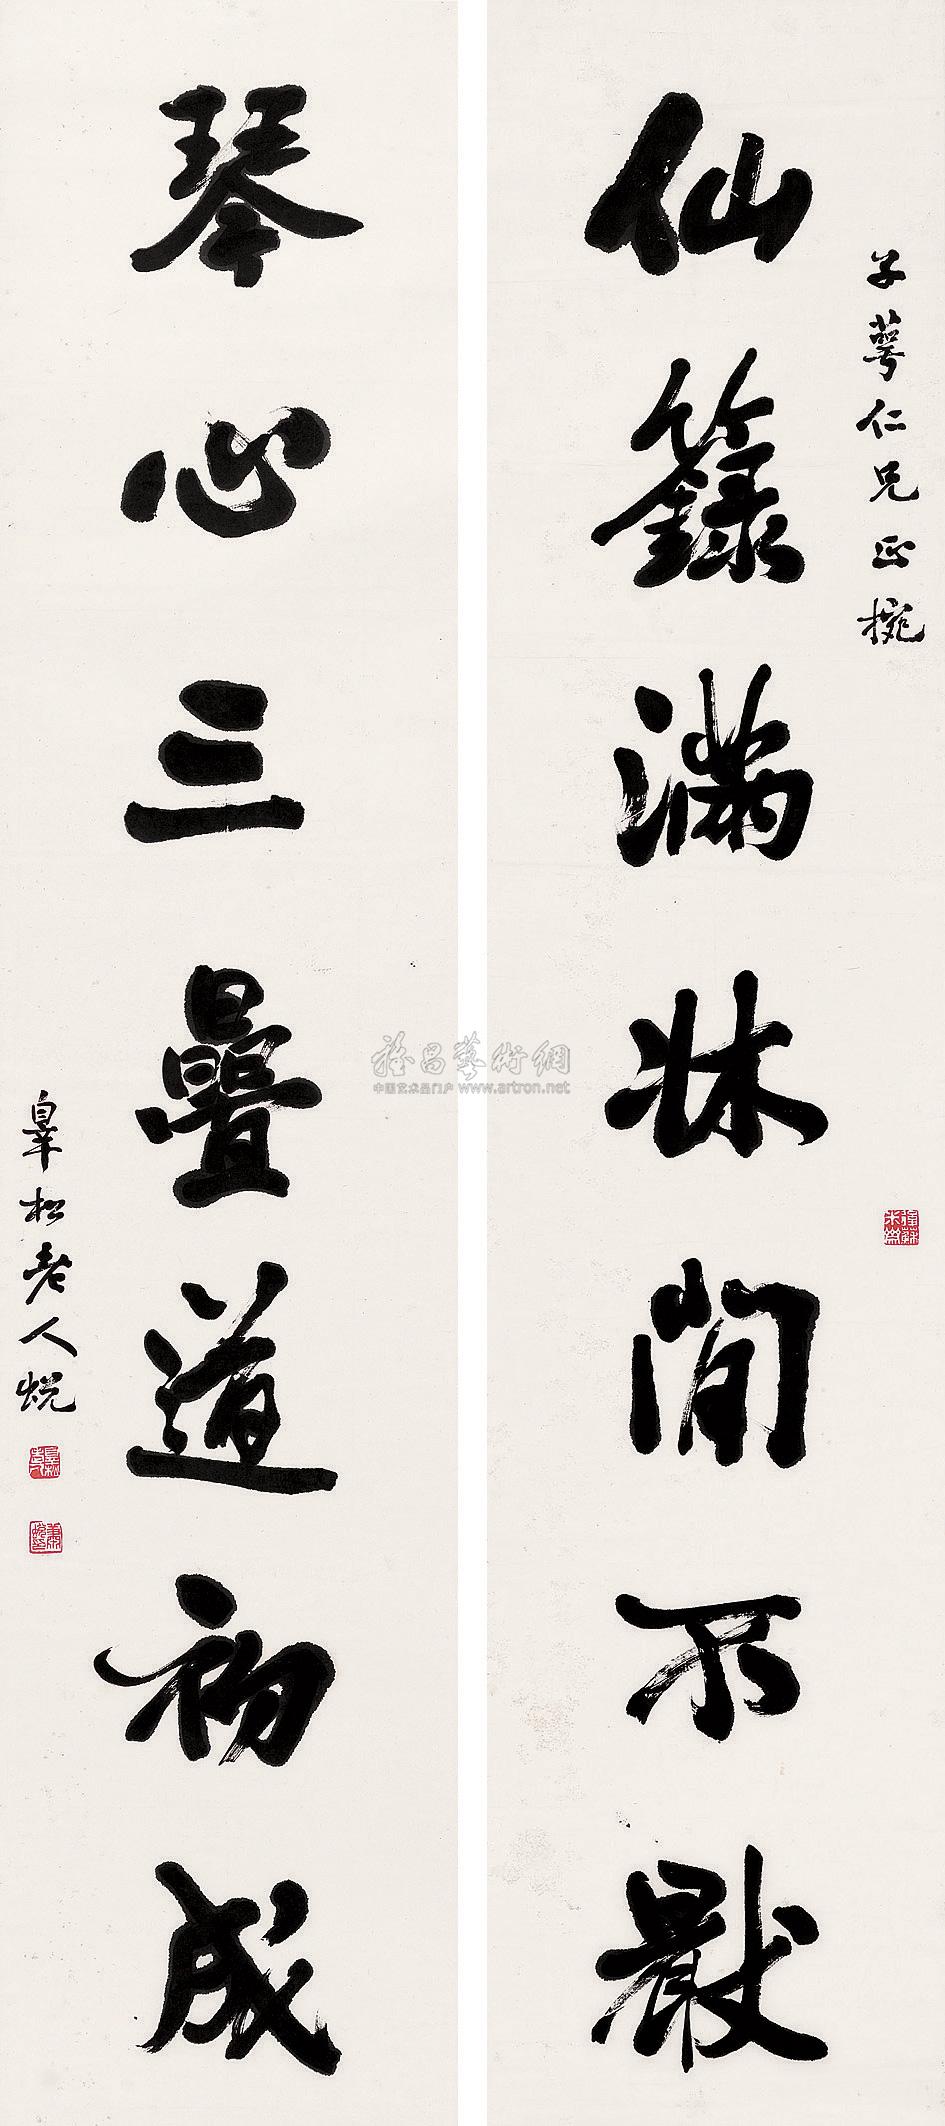 子萼仁兄正椀
仙籙滿牀閒不厭
琴心三疊道初成
皋松老人蜕
雅昌藝術網
中国艺术品门户 www.artron.net